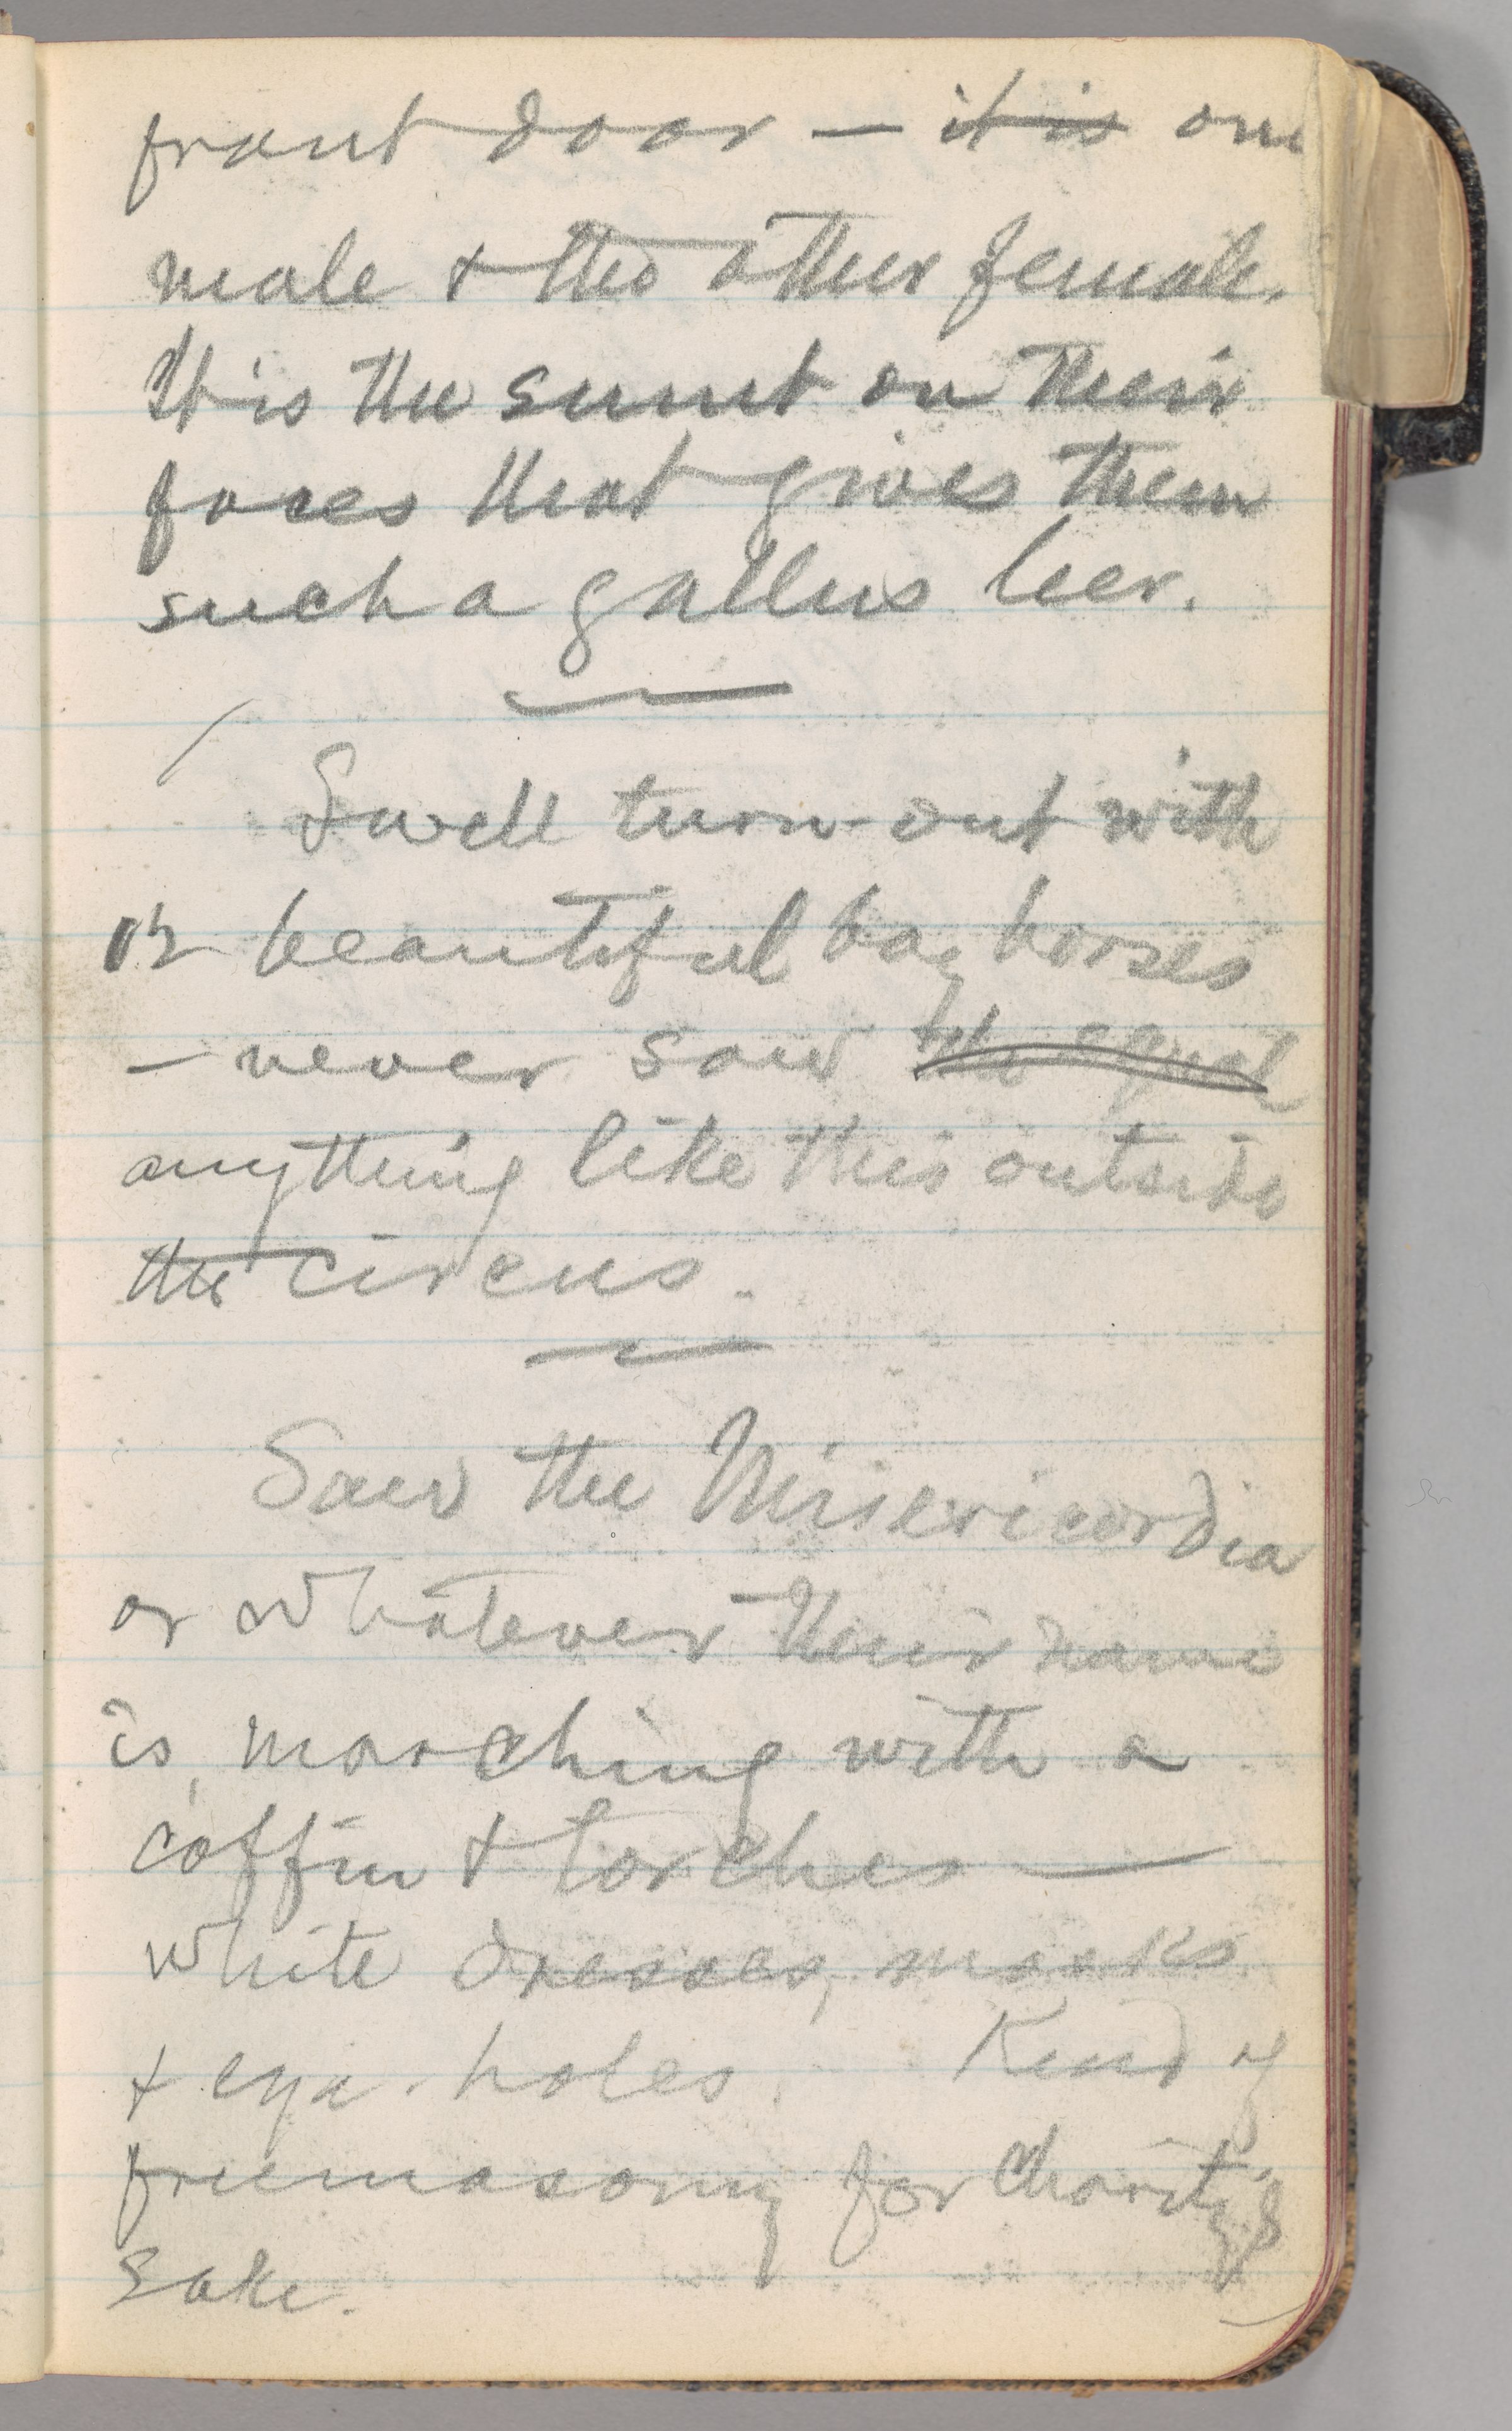 front door — it is one
male & the other female.
It is the smut on their
faces that gives them
such a gallus leer.
Swell turn-out with
12 beautiful bay horses
— never saw the equal
anything like this outside
the circus.
Saw the Misericordia
or whatever their name
is, marching with a
coffin & torches —
white dresses, masks
& eye-holes. Kind of
freemasonry for charity's
sake.